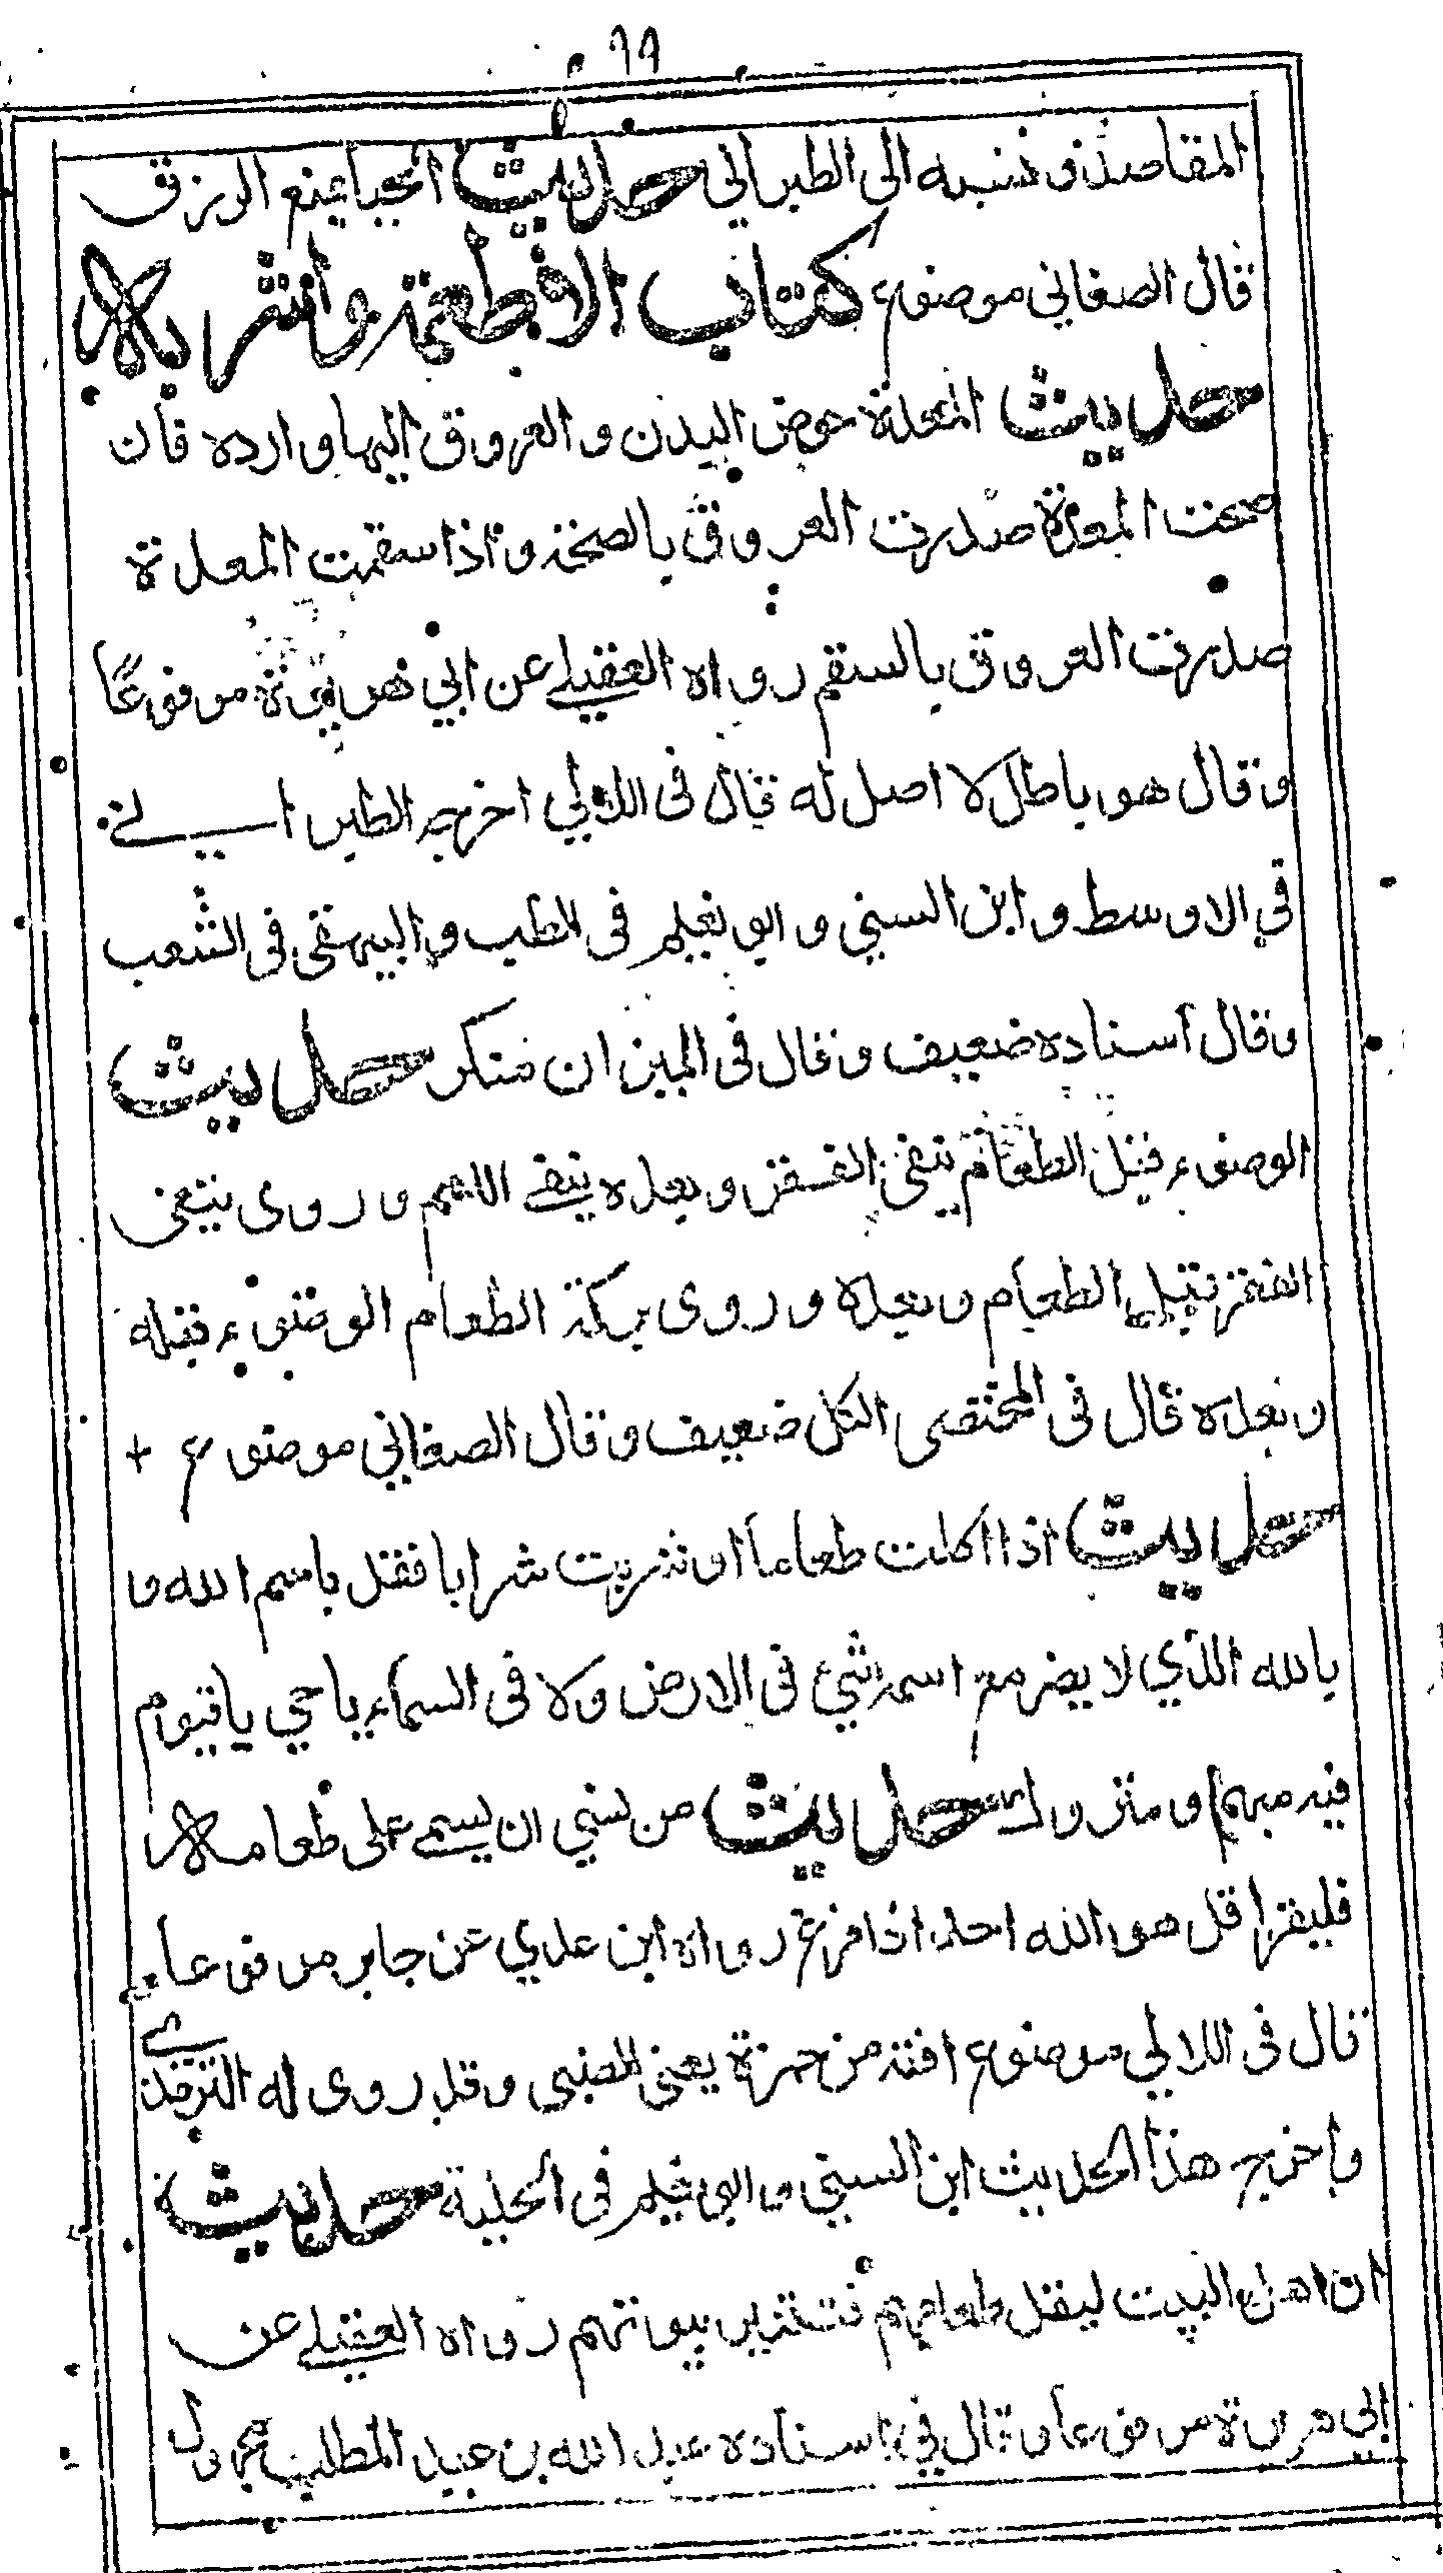 ٦٩
المقاصد و نسبه الى الطبراني حديث الحيا يمنع الرزق
قال الصغاني موضوع كتاب الاطعمة والشربة
حديث المعدة حوض البدن و العروق اليها واردة فان
صحت المعدة صدرت العروق بالصحة و اذا سقمت المعدة
صدرت العروق بالسقم رواه العقيلي عن ابي هريرة مرفوعًا
وقال هو باطل لا اصل له قال فى اللالي اخرجه الطبراني
في الاوسط و ابن السني و ابو نعيم فى الطب و البيهقى فى الشعب
وقال اسناده ضعيف و قال فى الميزان منكر حديث
الوضوء قبل الطعام ينفى الفقر و بعده ينفي اللمم و روى ينفى
الفقر قبل الطعام و بعده و روى بركة الطعام الوضوء قبله
و بعده قال فى المختصر الكل ضعيف و قال الصغاني موضوع +
حديث اذا اكلت طعاماً او شربت شرابا فقل باسم الله و
بالله الذي لا يضر مع اسمه شئ فى الارض ولا فى السماء يا حي يا قيوم
فيه متهم و متروك حديث من نسي ان يسمي على طعامه
فليقرا قل هو الله احد اذا فرغ رواه ابن عدي عن جابر مرفوعا
قال فى اللالي موضوع افته من حمزة يعنى النصيبى و قد روى له الترمذي
واخرج هذا الحديث ابن السني و ابي نعيم فى الحلية حديث
ان اهل البيت ليقل طعامهم فتستنير بيوتهم رواه العقيلي عن
ابي هريرة مرفوعا و قال في اسناده عبد الله بن عبد المطلب مجهول